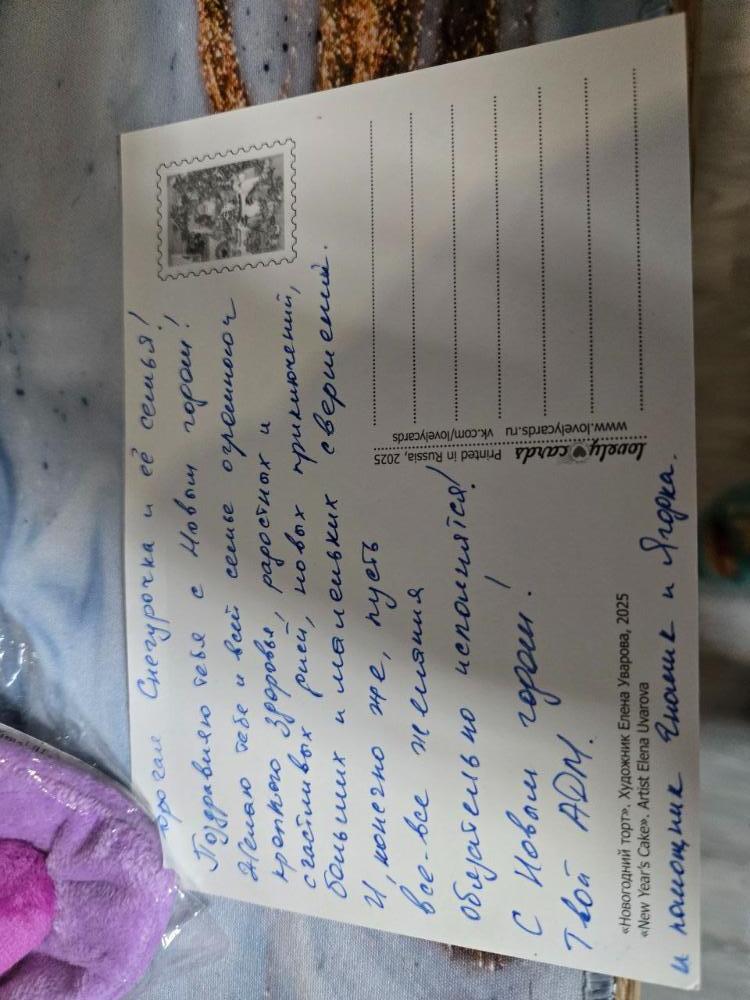 Дорогая Снегурочка и её семья!
Поздравляю тебя с Новым годом!
Желаю тебе и всей семье огромного
крепкого здоровья, радостных и
счастливых дней, новых приключений,
больших и маленьких свершений.
И, конечно же, пусть
все-все желания
обязательно исполнятся!
С Новым годом!
Твой АДМ.
и помощник Гномик и Ягодка.
«Новогодний торт». Художник Елена Уварова, 2025
«New Year's Cake». Artist Elena Uvarova
lovely cards
www.lovelycards.ru
vk.com/lovelycards
Printed in Russia, 2025